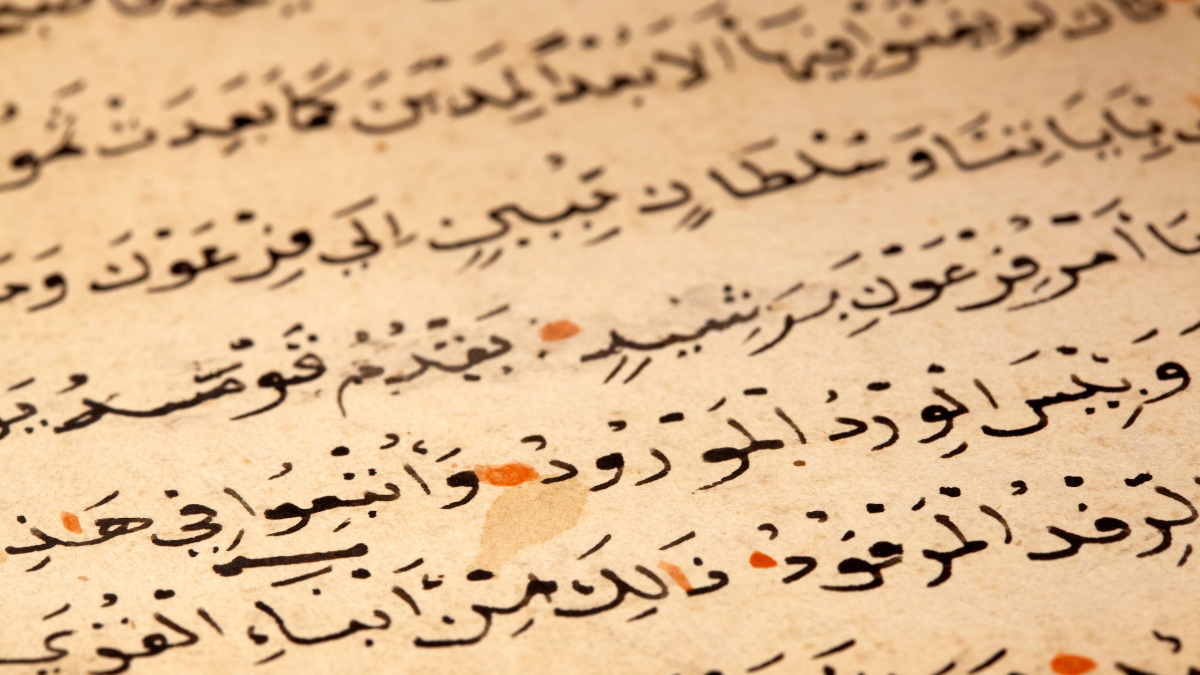 كَأَن لَّمْ يَغْنَوْا فِيهَا أَلَا بُعْدًا لِّمَدْيَنَ كَمَا بَعِدَتْ ثَمُودُ
بِآيَاتِنَا وَسُلْطَانٍ مُّبِينٍ إِلَى فِرْعَوْنَ
أَمْرُ فِرْعَوْنَ بِرَشِيدٍ يَقْدُمُ قَوْمَهُ
وَبِئْسَ الْوِرْدُ الْمَوْرُودُ وَأُتْبِعُوا فِي هَذِهِ
الرِّفْدُ الْمَرْفُودُ ذَلِكَ مِنْ أَنبَاءِ الْقُرَى